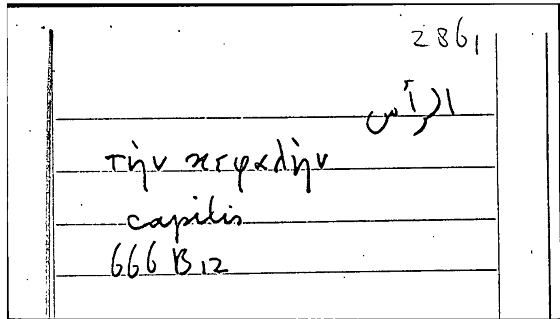 2861
الرأس
τὴν κεφαλὴν
capitis
666 B 12